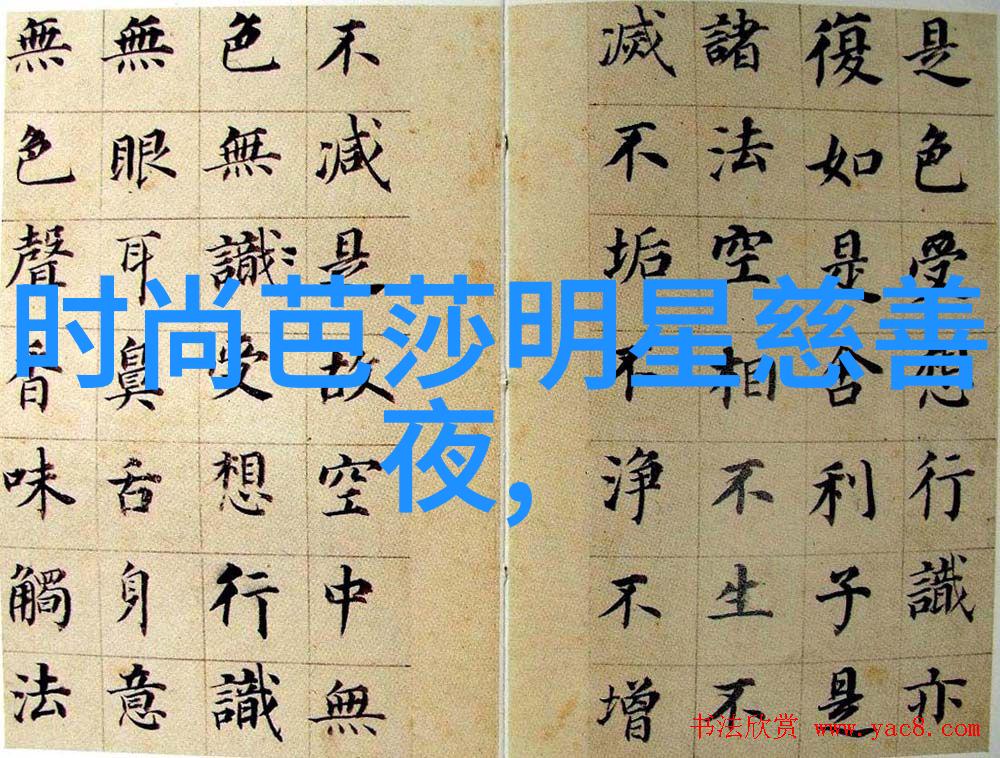 时尚芭莎明星慈善
夜,
是色受想行識亦
復如是舍利子是
諸法空相不生不
滅不垢不淨不增
不減是故空中無
色無識受想行識
無眼耳鼻舌身意
無色聲香味觸法
书法欣赏 www.yac8.com